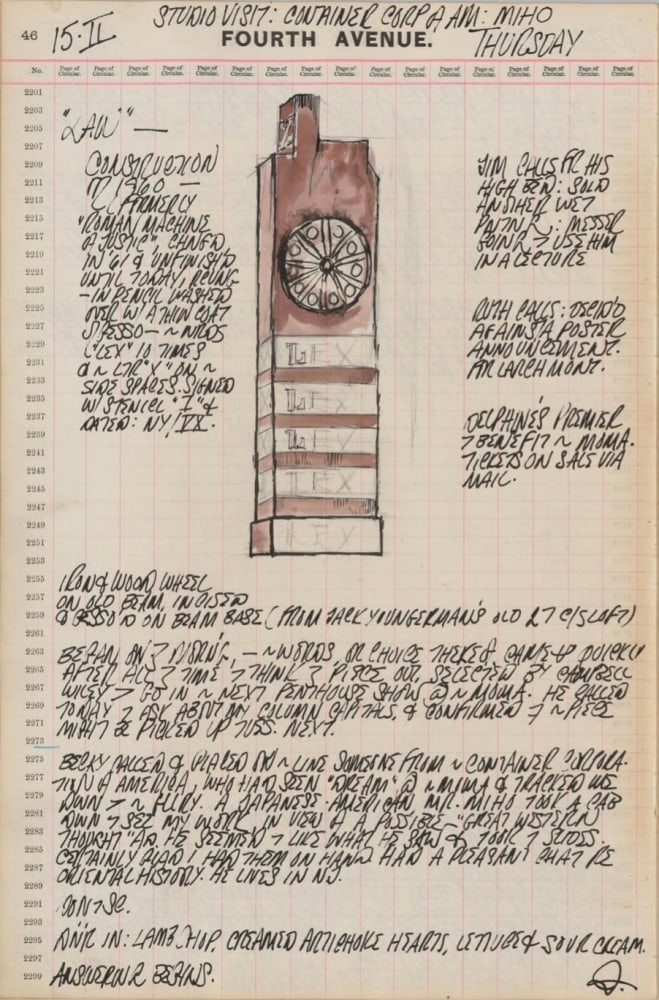 STUDIO VISIT: CONTAINER CORP of AM: MIHO
46 15·II FOURTH AVENUE. THURSDAY
No. Page of Circular. Page of Circular. Page of Circular. Page of Circular. Page of Circular. Page of Circular. Page of Circular. Page of Circular. Page of Circular. Page of Circular. Page of Circular. Page of Circular. Page of Circular. Page of Circular. Page of Circular. Page of Circular.
2201
2203
2205
2207
2209
2211
2213
2215
2217
2219
2221
2223
2225
2227
2229
2231
2233
2235
2237
2239
2241
2243
2245
2247
2249
2251
2253
2255
2257
2259
2261
2263
2265
2267
2269
2271
2273
2275
2277
2279
2281
2283
2285
2287
2289
2291
2293
2295
2297
2299
"LAW" —
CONSTRUCTION
1960 —
FORMERLY
"ROMAN MACHINE
of JUSTICE", CHNGD
IN '61 & UNFINISH'D
UNTIL TODAY,
— IN PENCIL WASHED
OVER W/ A THIN COAT
GESSO — ~ WORDS
"LEX" 10 TIMES
~ LTR "X" ON ~
SIDE SPACES. SIGNED
W/ STENCIL "I" &
DATED: NY/
LEX
LEX
LEX
LEX
LEX
JIM CALLS FR HIS
HIGH BED: SOLD
ANOTHER WET
PNTNG: MESSER
GOING 7 USE HIM
IN A LECTURE
RUTH CALLS: DECID'D
AGAINST A POSTER
ANNOUNCEMENT.
FR LARCHMONT.
DELPHINE'S PREMIER
7 BENEFIT ~ MOMA.
TICKETS ON SALE VIA
MAIL.
IRON & WOOD WHEEL
ON OLD BEAM, IN GESSO
& GESSO'D ON BEAM BASE (FROM JACK YOUNGERMAN'S OLD 27 C/S LOFT)
BEGAN ON 7 MORN'G, — ~ WORDS, OR CHOICE THEREOF CAME UP QUICKLY
AFTER ALL 7 TIME 7 THINK 7 PIECE OUT, SELECTED BY CAMPBELL
WILEY > GO IN ~ NEXT PENTHOUSE SHOW @ ~ MOMA. HE CALLED
TODAY 7 ASK ABOUT MY COLUMN CAPITALS, & CONFIRMED 7 ~ PIECE
MIGHT BE PICKED UP TUES. NEXT.
BECKY CALLED & PLACED ON ~ LINE SOMEONE FROM ~ CONTAINER CORPORA-
TION OF AMERICA, WHO HAD SEEN "DREAM" @ ~ MOMA & TRACKED ME
DOWN > ~ GLLRY. A JAPANESE-AMERICAN MR. MIHO TOOK A CAB
DOWN 7 SEE MY WORK, IN VIEW OF A POSSIBLE "GREAT WESTERN
THOUGHT" AD. HE SEEMED 7 LIKE WHAT HE SAW & TOOK 7 SLIDES.
CERTAINLY GLAD I HAD THEM ON HAND. HAD A PLEASANT CHAT RE
ORIENTAL HISTORY. HE LIVES IN NJ.
DIN'R IN: LAMB CHOP, CREAMED ARTICHOKE HEARTS, LETTUCE & SOUR CREAM.
ANSWERING BEGINS.